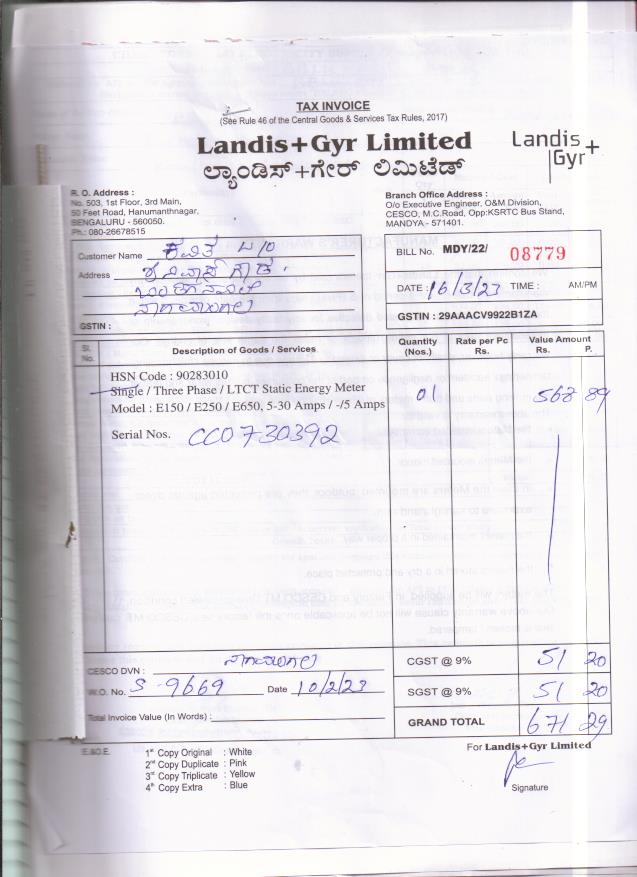 TAX INVOICE
(See Rule 46 of the Central Goods & Services Tax Rules, 2017)
Landis+Gyr Limited
ಲ್ಯಾಂಡಿಸ್+ಗೇರ್ ಲಿಮಿಟೆಡ್
Landis+
Gyr
R. O. Address :
No. 503, 1st Floor, 3rd Main,
50 Feet Road, Hanumanthnagar,
BENGALURU - 560050.
Ph.: 080-26678515
Branch Office Address :
O/o Executive Engineer, O&M Division,
CESCO, M.C.Road, Opp:KSRTC Bus Stand,
MANDYA - 571401.
Customer Name ಕವಿತ
Address
ನಾಗಮಂಗಲ
GSTIN :
BILL No. MDY/22/ 08779
DATE : 16/3/23 TIME : AM/PM
GSTIN : 29AAACV9922B1ZA
Sl. No. Description of Goods / Services Quantity (Nos.) Rate per Pc Rs. Value Amount Rs. P.
HSN Code : 90283010
Single / Three Phase / LTCT Static Energy Meter 01 568 89
Model : E150 / E250 / E650, 5-30 Amps / -/5 Amps
Serial Nos. CC0730392
CESCO DVN : ನಾಗಮಂಗಲ
W.O. No. S-9669 Date 10/2/23
Total Invoice Value (In Words) :
CGST @ 9% 51 20
SGST @ 9% 51 20
GRAND TOTAL 671 29
E.&O.E.
1st Copy Original : White
2nd Copy Duplicate : Pink
3rd Copy Triplicate : Yellow
4th Copy Extra : Blue
For Landis+Gyr Limited
Signature